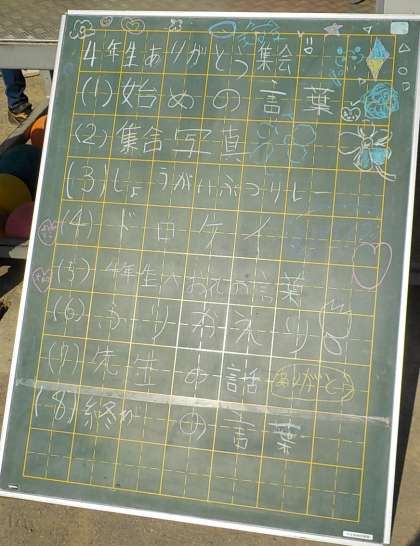 4年生ありがとう集会
(1)始めの言葉
(2)集合写真
(3)しょうがいぶつリレー
(4)ドロケイ
(5)4年生へお礼の言葉
(6)ふりかえり
(7)先生の話 ありがとう
(8)終わりの言葉